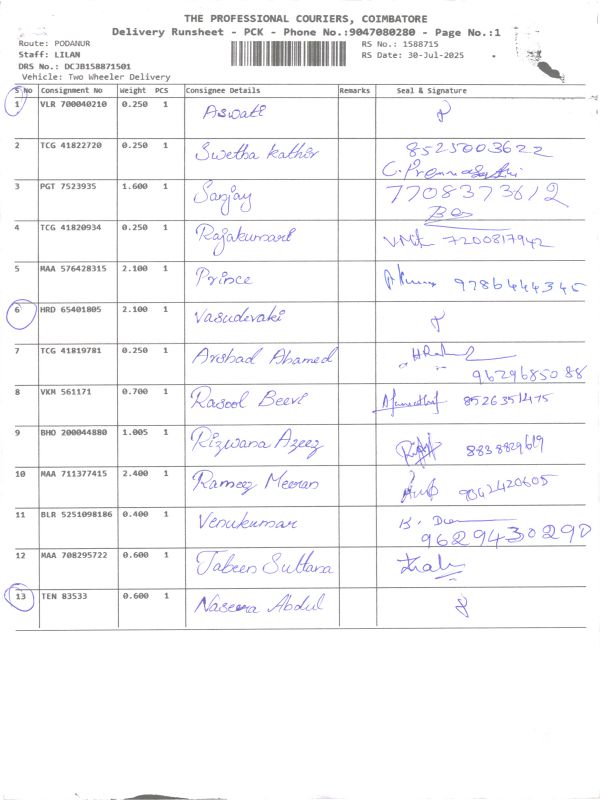 THE PROFESSIONAL COURIERS, COIMBATORE
Delivery Runsheet - PCK - Phone No.:9047080280 - Page No.:1
Route: PODANUR RS No.: 1588715
Staff: LILAN RS Date: 30-Jul-2025
DRS No.: DCJB158871501
Vehicle: Two Wheeler Delivery
S No Consignment No Weight PCS Consignee Details Remarks Seal & Signature
1 VLR 700040210 0.250 1 Aswati
2 TCG 41822720 0.250 1 Swetha Kathir 8525003622
3 PGT 7523935 1.600 1 Sanjay 7708373612
4 TCG 41820934 0.250 1 Rajakumari 7200817942
5 MAA 576428315 2.100 1 Prince 9786444345
6 HRD 65401805 2.100 1 Vasudevaki
7 TCG 41819781 0.250 1 Arshad Ahamed 9629685088
8 VKM 561171 0.700 1 Rasool Beevi 8526351475
9 BHO 200044880 1.005 1 Rizwana Azeez 8838829619
10 MAA 711377415 2.400 1 Rameez Meeran 9042420605
11 BLR 5251098186 0.400 1 Venukumar 9629430290
12 MAA 708295722 0.600 1 Tabeen Sultana
13 TEN 83533 0.600 1 Naseera Abdul